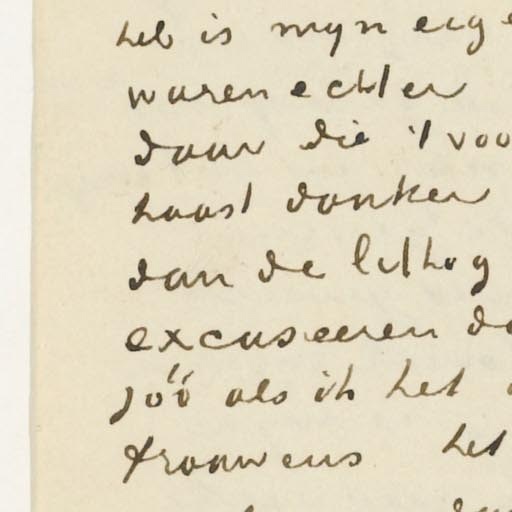 heb is mijn eig
waren echter
daar die 't voo
haast donker
dan de lithog
excuseeren da
zóó als ik het
trouwens het